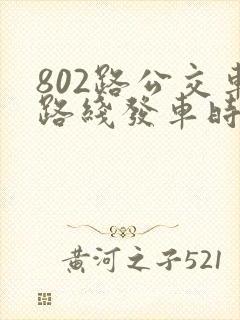 802路公交車
路綫發車時
黃河之子521